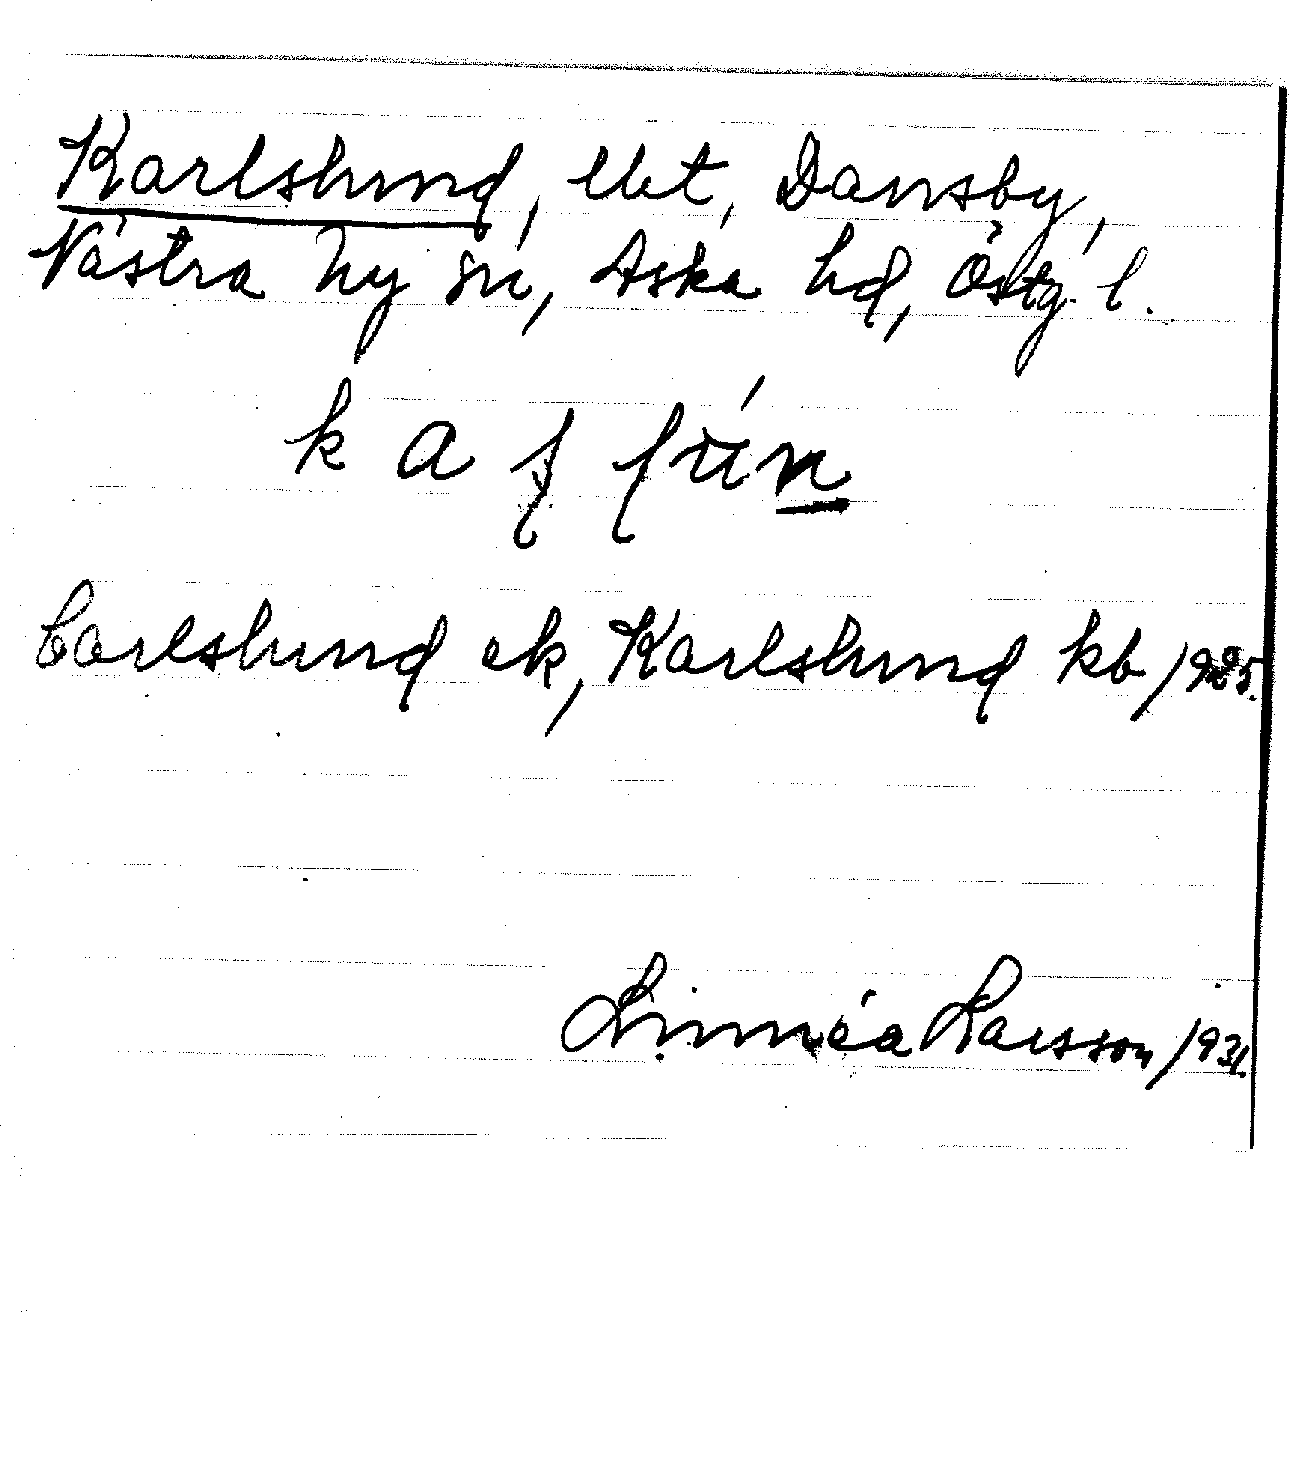 Karlslund, lht, Dansby,
Västra Ny sn, Aska hd, Östg. l.
k a
Carlslund ek, Karlslund kb 1925.
Linnéa Larsson 1931.